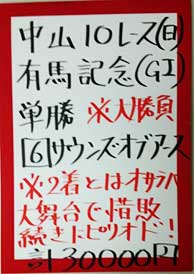 中山10レース(日)
有馬記念(GI)
単勝 ※大勝負
[6]サウンズオブアース
※2着とはオサラバ
大舞台で惜敗
続きにピリオド!
計30000円